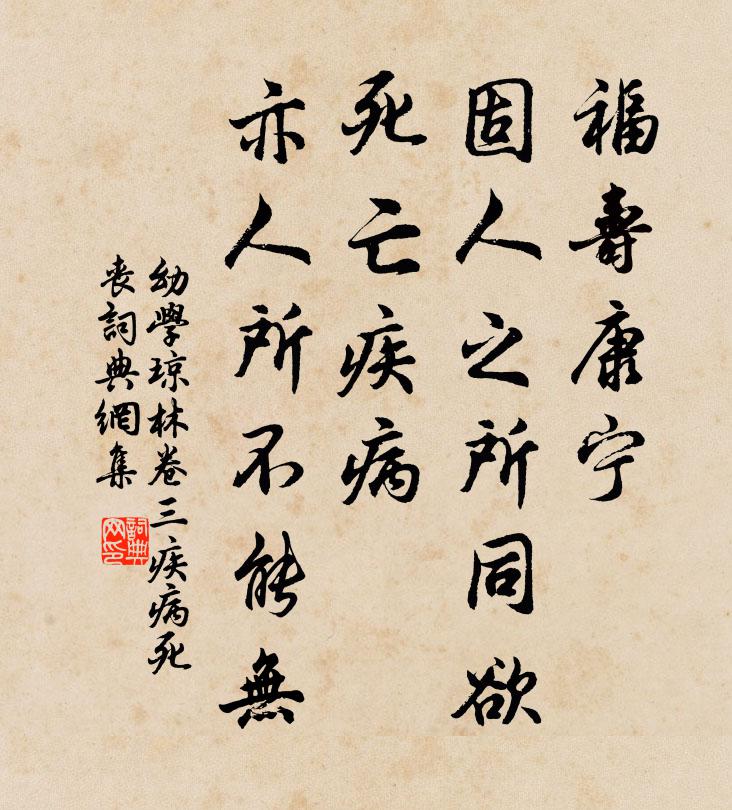 福壽康宁
固人之所同欲
死亡疾病
亦人所不能無
幼學琼林卷三疾病死
喪詞典網集
詞典
网印